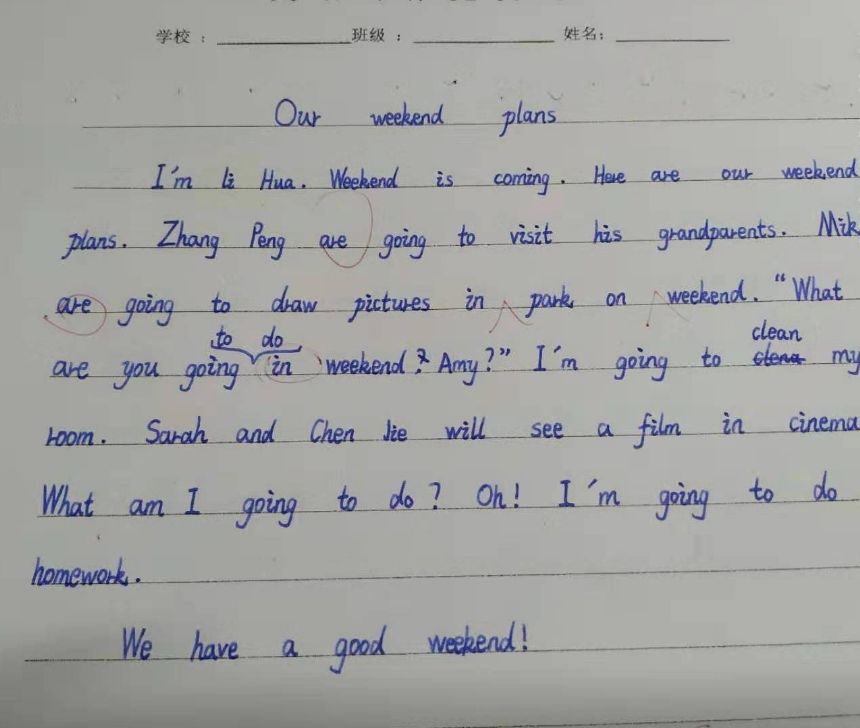 学校： 班级： 姓名：
Our weekend plans
I'm li Hua. Weekend is coming. Here are our weekend
plans. Zhang Peng are going to visit his grandparents. Mik
are going to draw pictures in park on weekend. "What
to do clean
are you going in weekend? Amy?" I'm going to clena my
room. Sarah and Chen Jie will see a film in cinema
What am I going to do? Oh! I'm going to do
homework.
We have a good weekend!